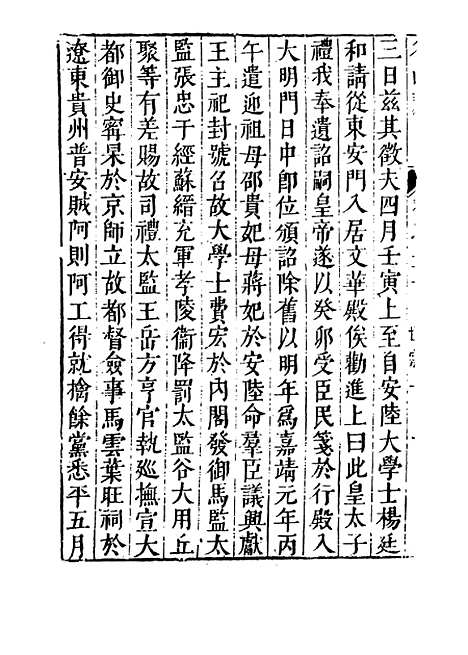 三日兹其徵夫四月壬寅上至自安陸大學士楊廷
和請從東安門入居文華殿俟勸進上曰此皇太子
禮我奉遺詔嗣皇帝遂以癸卯受臣民箋於行殿入
大明門日中卽位頒詔除舊以明年爲嘉靖元年丙
午遣迎祖母邵貴妃母蔣妃於安陸命羣臣議興獻
王主祀封號召故大學士費宏於內閣發御馬監太
監張忠于經蘇縉充軍孝陵衞降罰太監谷大用丘
聚等有差賜故司禮太監王岳方亨官執廵撫宣大
都御史寗杲於京師立故都督僉事馬雲葉旺祠於
遼東貴州普安賊阿則阿工得就擒餘黨悉平五月